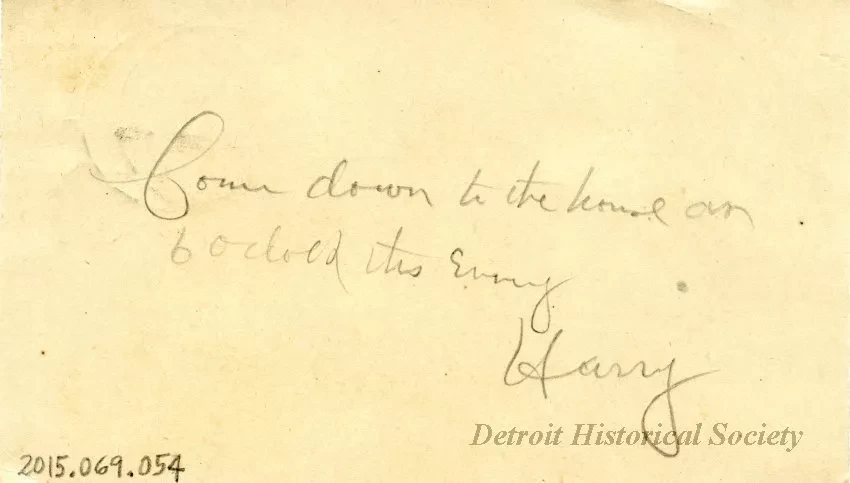 Come down to the house on
6 oclock this Evning
Harry
Detroit Historical Society
2015.069.054